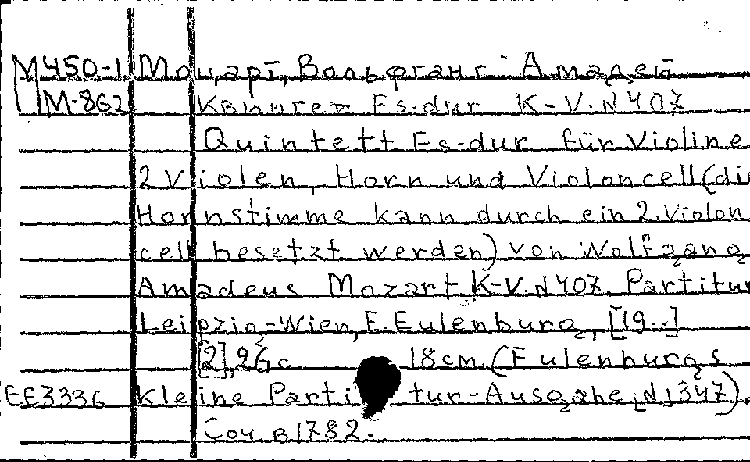 М450-1 Моцарт, Вольфганг Амадей
М-862 Квинтет Es-dur K-V. N 407
Quintett Es-dur für Violine
2 Violen, Horn und Violoncell (di
Hornstimme kann durch ein 2. Violon
cell besetzt werden) von Wolfgang
Amadeus Mozart K-V. N 407. Partitur
Leipzig-Wien, E. Eulenburg, [19..]
[2], 26 с. 18 cm. (Eulenburgs
EE3336 Kleine Partitur-Ausgabe, N 1347).
Соч. в 1782.